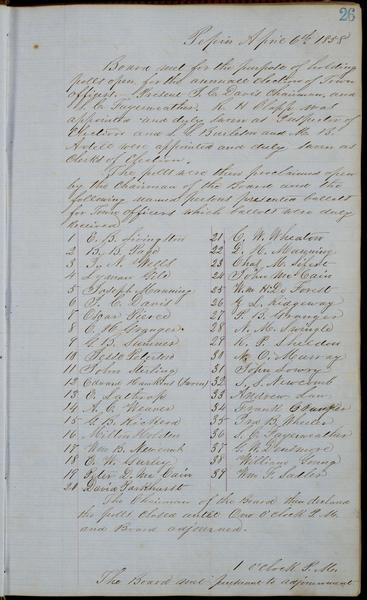 26
Pepin April 6th 1858
Board met for the purpose of holding
polls open for the annual election of Town
officers. Present S. C. Davis Chairman, and
S. C. Fayerweather. K. H. was
appointed and duly sworn as Inspector of
Election and L. G. and Wm B.
were appointed and duly sworn as
Clerks of Election.
The polls were then proclaimed open
by the Chairman of the Board and the
following named persons presented ballots
for Town Officers which ballots were duly
Received
1 E. B. Livingston
2 B. B.
3
4 Lyman
5 Joseph Manning
6 S. C. Davis
7 Oscar Pierce
8 C. H. Granger
9 G. B. Sumner
10 Jesse
11 John Sterling
12 Edward Hawkins (Sworn)
13 O. Lathrop
14 A. C. Weaver
15 G. B.
16 Milton Holden
17 Wm B. Newcomb
18 C. W. Hurley
19 Tyler D. Mc Cain
20 David Parkhurst
21 C. W. Wheaton
22 L. H. Manning
23 Chas. M.
24 John Mc Cain
25 Wm H. De Forest
26 G. L. Ridgeway
27 P. B. Granger
28 N. M. Swingle
29 K. P. Sheldon
30 N. O. Murray
31 John Lowry
32 S. S. Newcomb
33 Andrew Law
34 Frank
35 Ira B. Wheeler
36 S. C. Fayerweather
37 G. W. Densmore
38 William Young
39 Wm F.
The Chairman of the Board then declared
the polls closed until One O'clock P.M.
and Board adjourned.
1 O'clock P.M.
The Board met pursuant to adjournment